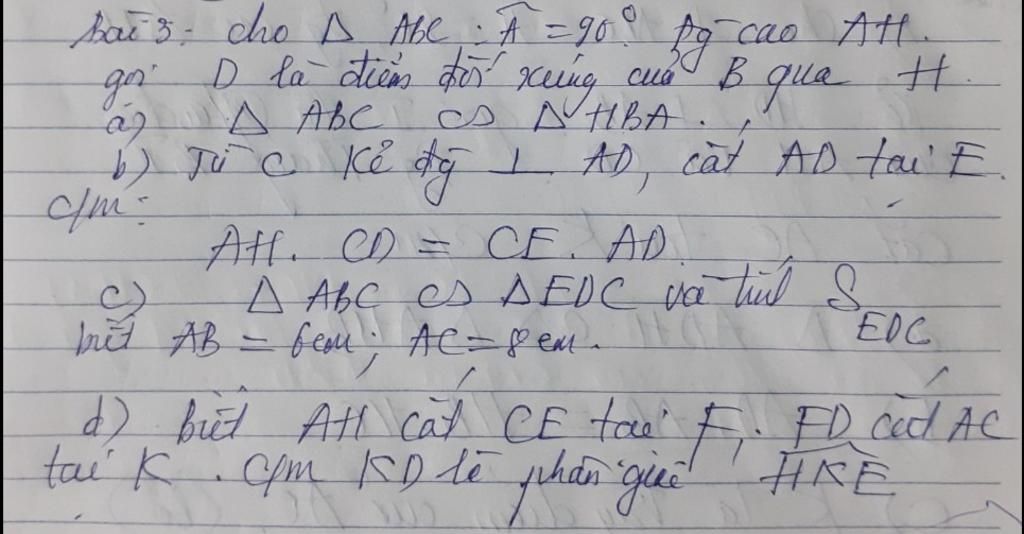 bài 3: cho Δ ABC : Â = 90°. Đg cao AH.
gọi D là điểm đối xứng của B qua H
a) Δ ABC ᔕ Δ HBA.
b) Từ C kẻ đg ⊥ AD, cắt AD tại E.
c/m:
AH. CD = CE. AD
c) Δ ABC ᔕ Δ EDC và tính S EDC
biết AB = 6cm; AC = 8cm.
d) biết AH cắt CE tại F. FD cắt AC
tại K. C/m KD là phân giác HKE